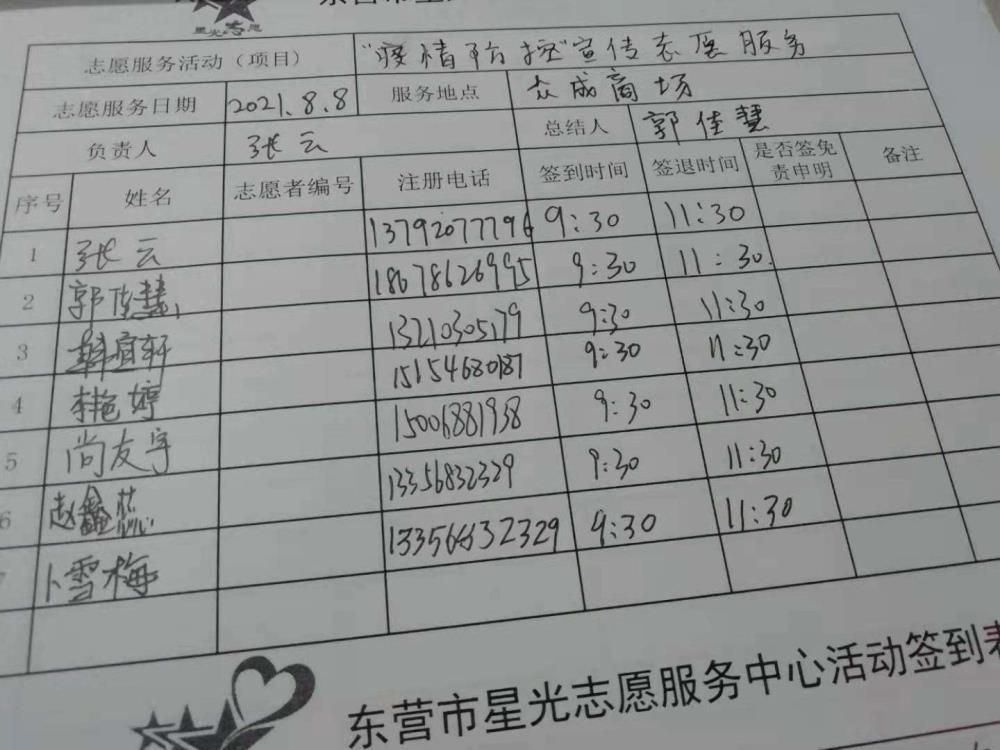 东营市星
星光志愿
志愿服务活动（项目） "疫情防控"宣传志愿服务
志愿服务日期 2021.8.8 服务地点 众成商场
负责人 张云 总结人 郭佳慧
序号 姓名 志愿者编号 注册电话 签到时间 签退时间 是否签免责申明 备注
1 张云 13792077796 9:30 11:30
2 郭佳慧 18678626995 9:30 11:30
3 韩宜轩 13210305179 9:30 11:30
4 李艳婷 15154680187 9:30 11:30
5 尚友宇 15006881938 9:30 11:30
6 赵鑫蕊 13356832329 9:30 11:30
7 卜雪梅 13356632329 9:30 11:30
东营市星光志愿服务中心活动签到表